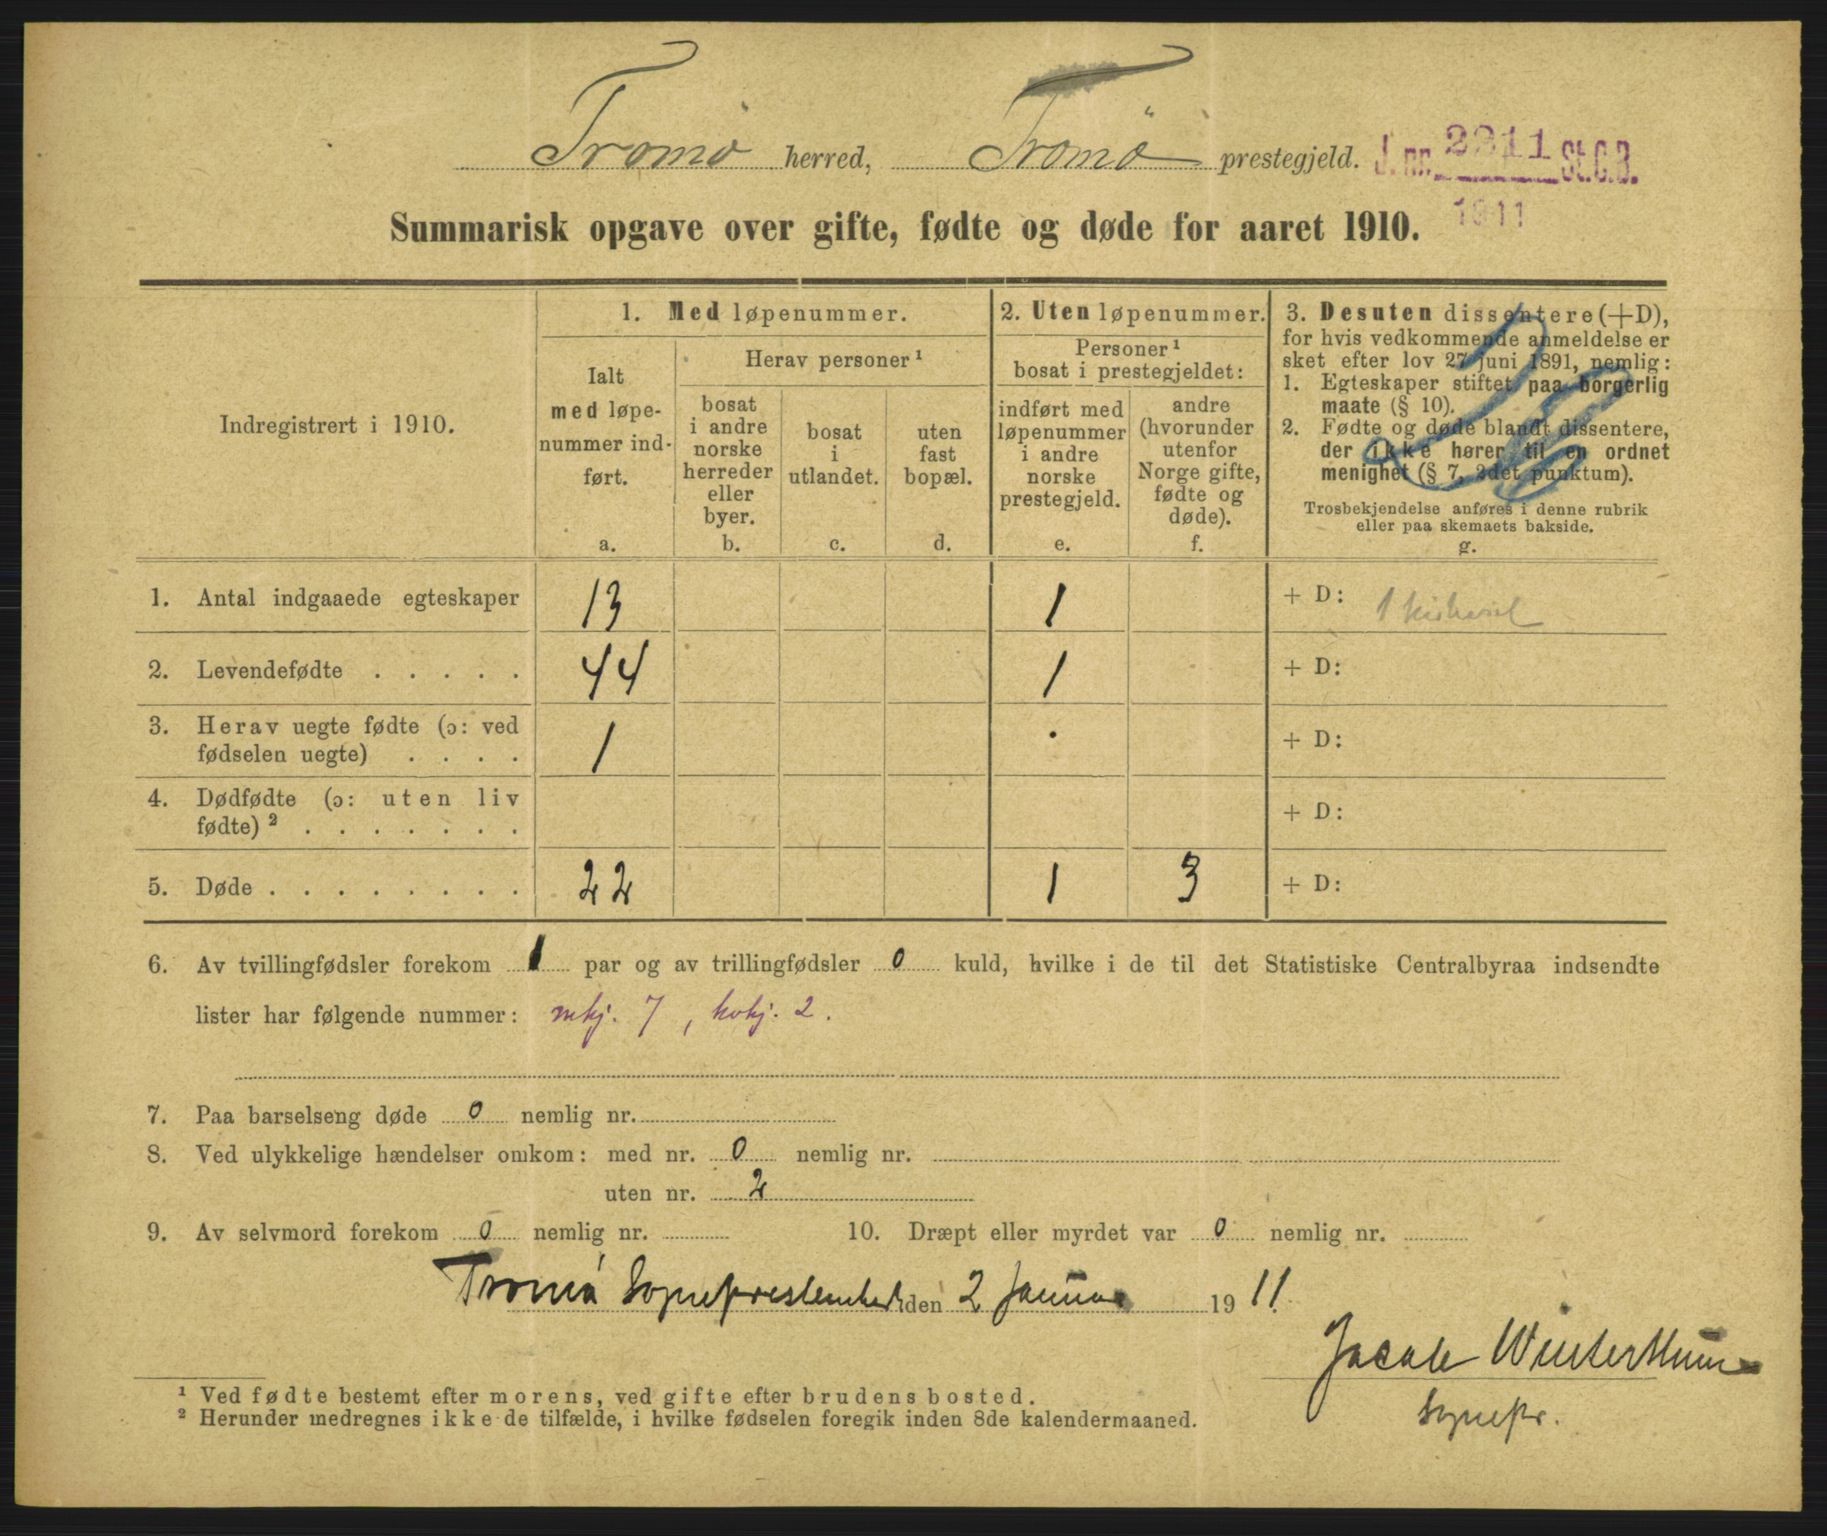 Tromø herred, Tromö prestegjeld. J. nr. 2311 St.C.B.
1911
Summarisk opgave over gifte, fødte og døde for aaret 1910.
Indregistrert i 1910.
1. Med løpenummer.
Ialt
med løpe-
nummer ind-
ført.
a.
Herav personer¹
bosat
i andre
norske
herreder
eller
byer.
b.
bosat
i
utlandet.
c.
uten
fast
bopæl.
d.
2. Uten løpenummer.
Personer¹
bosat i prestegjeldet:
indført med
løpenummer
i andre
norske
prestegjeld.
e.
andre
(hvorunder
utenfor
Norge gifte,
fødte og
døde).
f.
3. Desuten dissentere (+D),
for hvis vedkommende anmeldelse er
sket efter lov 27 juni 1891, nemlig:
1. Egteskaper stiftet paa borgerlig
maate (§ 10).
2. Fødte og døde blandt dissentere,
der ikke hører til en ordnet
menighet (§ 7, 2det punktum).
Trosbekjendelse anføres i denne rubrik
eller paa skemaets bakside.
g.
1. Antal indgaaede egteskaper 13 1 + D: 1
2. Levendefødte . . . . . 44 1 + D:
3. Herav uegte fødte (ɔ: ved
fødselen uegte) . . . . 1 · + D:
4. Dødfødte (ɔ: uten liv
fødte)² . . . . . . . + D:
5. Døde . . . . . . . . 22 1 3 + D:
6. Av tvillingfødsler forekom 1 par og av trillingfødsler 0 kuld, hvilke i de til det Statistiske Centralbyraa indsendte
lister har følgende nummer: mkj. 7, kvkj. 2.
7. Paa barselseng døde 0 nemlig nr.
8. Ved ulykkelige hændelser omkom: med nr. 0 nemlig nr.
uten nr. 2
9. Av selvmord forekom 0 nemlig nr. 10. Dræpt eller myrdet var 0 nemlig nr.
Tromø Sogneprestembede den 2 Januar 1911.
Jacob Winterthun
Sognepr.
¹ Ved fødte bestemt efter morens, ved gifte efter brudens bosted.
² Herunder medregnes ikke de tilfælde, i hvilke fødselen foregik inden 8de kalendermaaned.